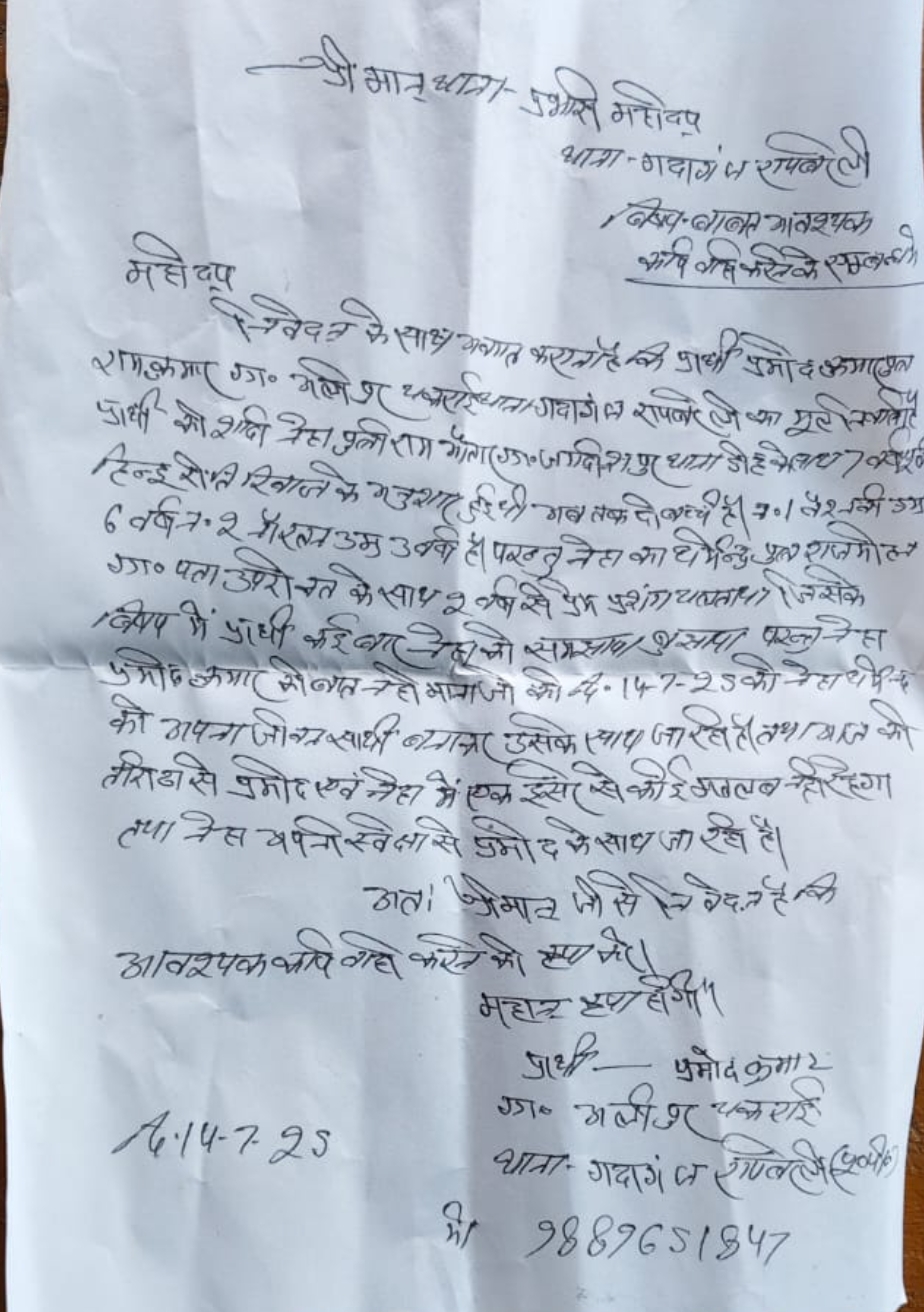 श्रीमान् थाना- प्रभारी महोदय
थाना-गदागंज रायबरेली
विषय-बाबत आवश्यक
कार्यवाही करने के सम्बन्ध में
महोदय
निवेदन के साथ अवगत कराना है कि प्रार्थी प्रमोद कुमार पुत्र
रामकुमार ग्रा० अलीपुर चकराई थाना गदागंज रायबरेली का मूल निवासी
प्रार्थी की शादी नेहा पुत्री राम ग्रा० जगदीशपुर थाना डीह के साथ 7 वर्ष पूर्व
हिन्दू रीति रिवाज के अनुशार हुई थी अब तक दो बच्चे है। न०1 की उम्र
6 वर्ष न०2 उम्र 3 वर्ष है। परन्तु नेहा का धर्मेन्द्र पुत्र राजमोहन
ग्रा० पता उपरोक्त के साथ 2 वर्ष से प्रेम प्रशंग चलता था। जिसके
विषय में प्रार्थी कई बार नेहा को समझाया बुझाया परन्तु नेहा
प्रमोद कुमार की बात नही मानी जो की दि० 14-7-25 को नेहा धर्मेन्द्र
को अपना जीवन साथी बनाकर उसके साथ जा रही है। तथा आज की
तारीख से प्रमोद एवं नेहा में एक दूसरे से कोई मतलब नही रहेगा
तथा नेहा अपनी स्वेक्षा से प्रमोद के साथ जा रही है।
अतः श्रीमान जी से निवेदन है कि
आवश्यक कार्यवाही करने की कृपा करे।
महान कृपा होगी"
प्रार्थी — प्रमोद कुमार
ग्रा० अलीपुर चकराई
थाना- गदागंज रायबरेली (उ०प्र०)
दि. 14-7-25
मो 9889651847